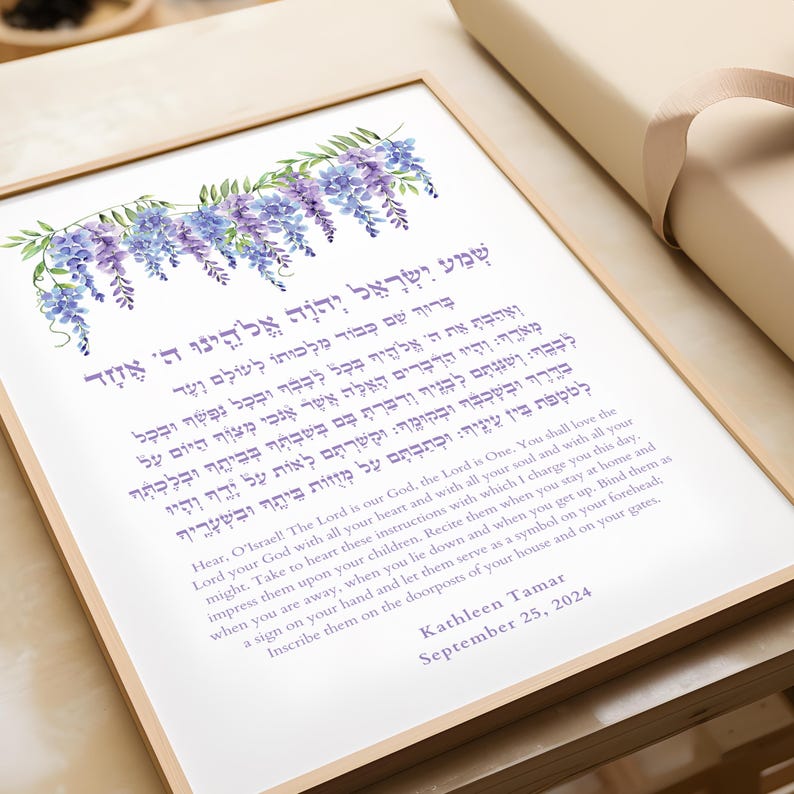 שְׁמַע יִשְׂרָאֵל יְהוָֹה אֱלֹהֵינוּ ה' אֶחָד
בָּרוּךְ שֵׁם כְּבוֹד מַלְכוּתוֹ לְעוֹלָם וָעֶד
וְאָהַבְתָּ אֵת ה' אֱלֹהֶיךָ בְּכָל לְבָבְךָ וּבְכָל נַפְשְׁךָ וּבְכָל
מְאֹדֶךָ: וְהָיוּ הַדְּבָרִים הָאֵלֶּה אֲשֶׁר אָנֹכִי מְצַוְּךָ הַיּוֹם עַל
לְבָבֶךָ: וְשִׁנַּנְתָּם לְבָנֶיךָ וְדִבַּרְתָּ בָּם בְּשִׁבְתְּךָ בְּבֵיתֶךָ וּבְלֶכְתְּךָ
בַדֶּרֶךְ וּבְשָׁכְבְּךָ וּבְקוּמֶךָ: וּקְשַׁרְתָּם לְאוֹת עַל יָדֶךָ וְהָיוּ
לְטֹטָפֹת בֵּין עֵינֶיךָ: וּכְתַבְתָּם עַל מְזוּזוֹת בֵּיתֶךָ וּבִשְׁעָרֶיךָ
Hear, O'Israel! The Lord is our God, the Lord is One. You shall love the
Lord your God with all your heart and with all your soul and with all your
might. Take to heart these instructions with which I charge you this day.
impress them upon your children. Recite them when you stay at home and
when you are away, when you lie down and when you get up. Bind them as
a sign on your hand and let them serve as a symbol on your forehead;
Inscribe them on the doorposts of your house and on your gates.
Kathleen Tamar
September 25, 2024